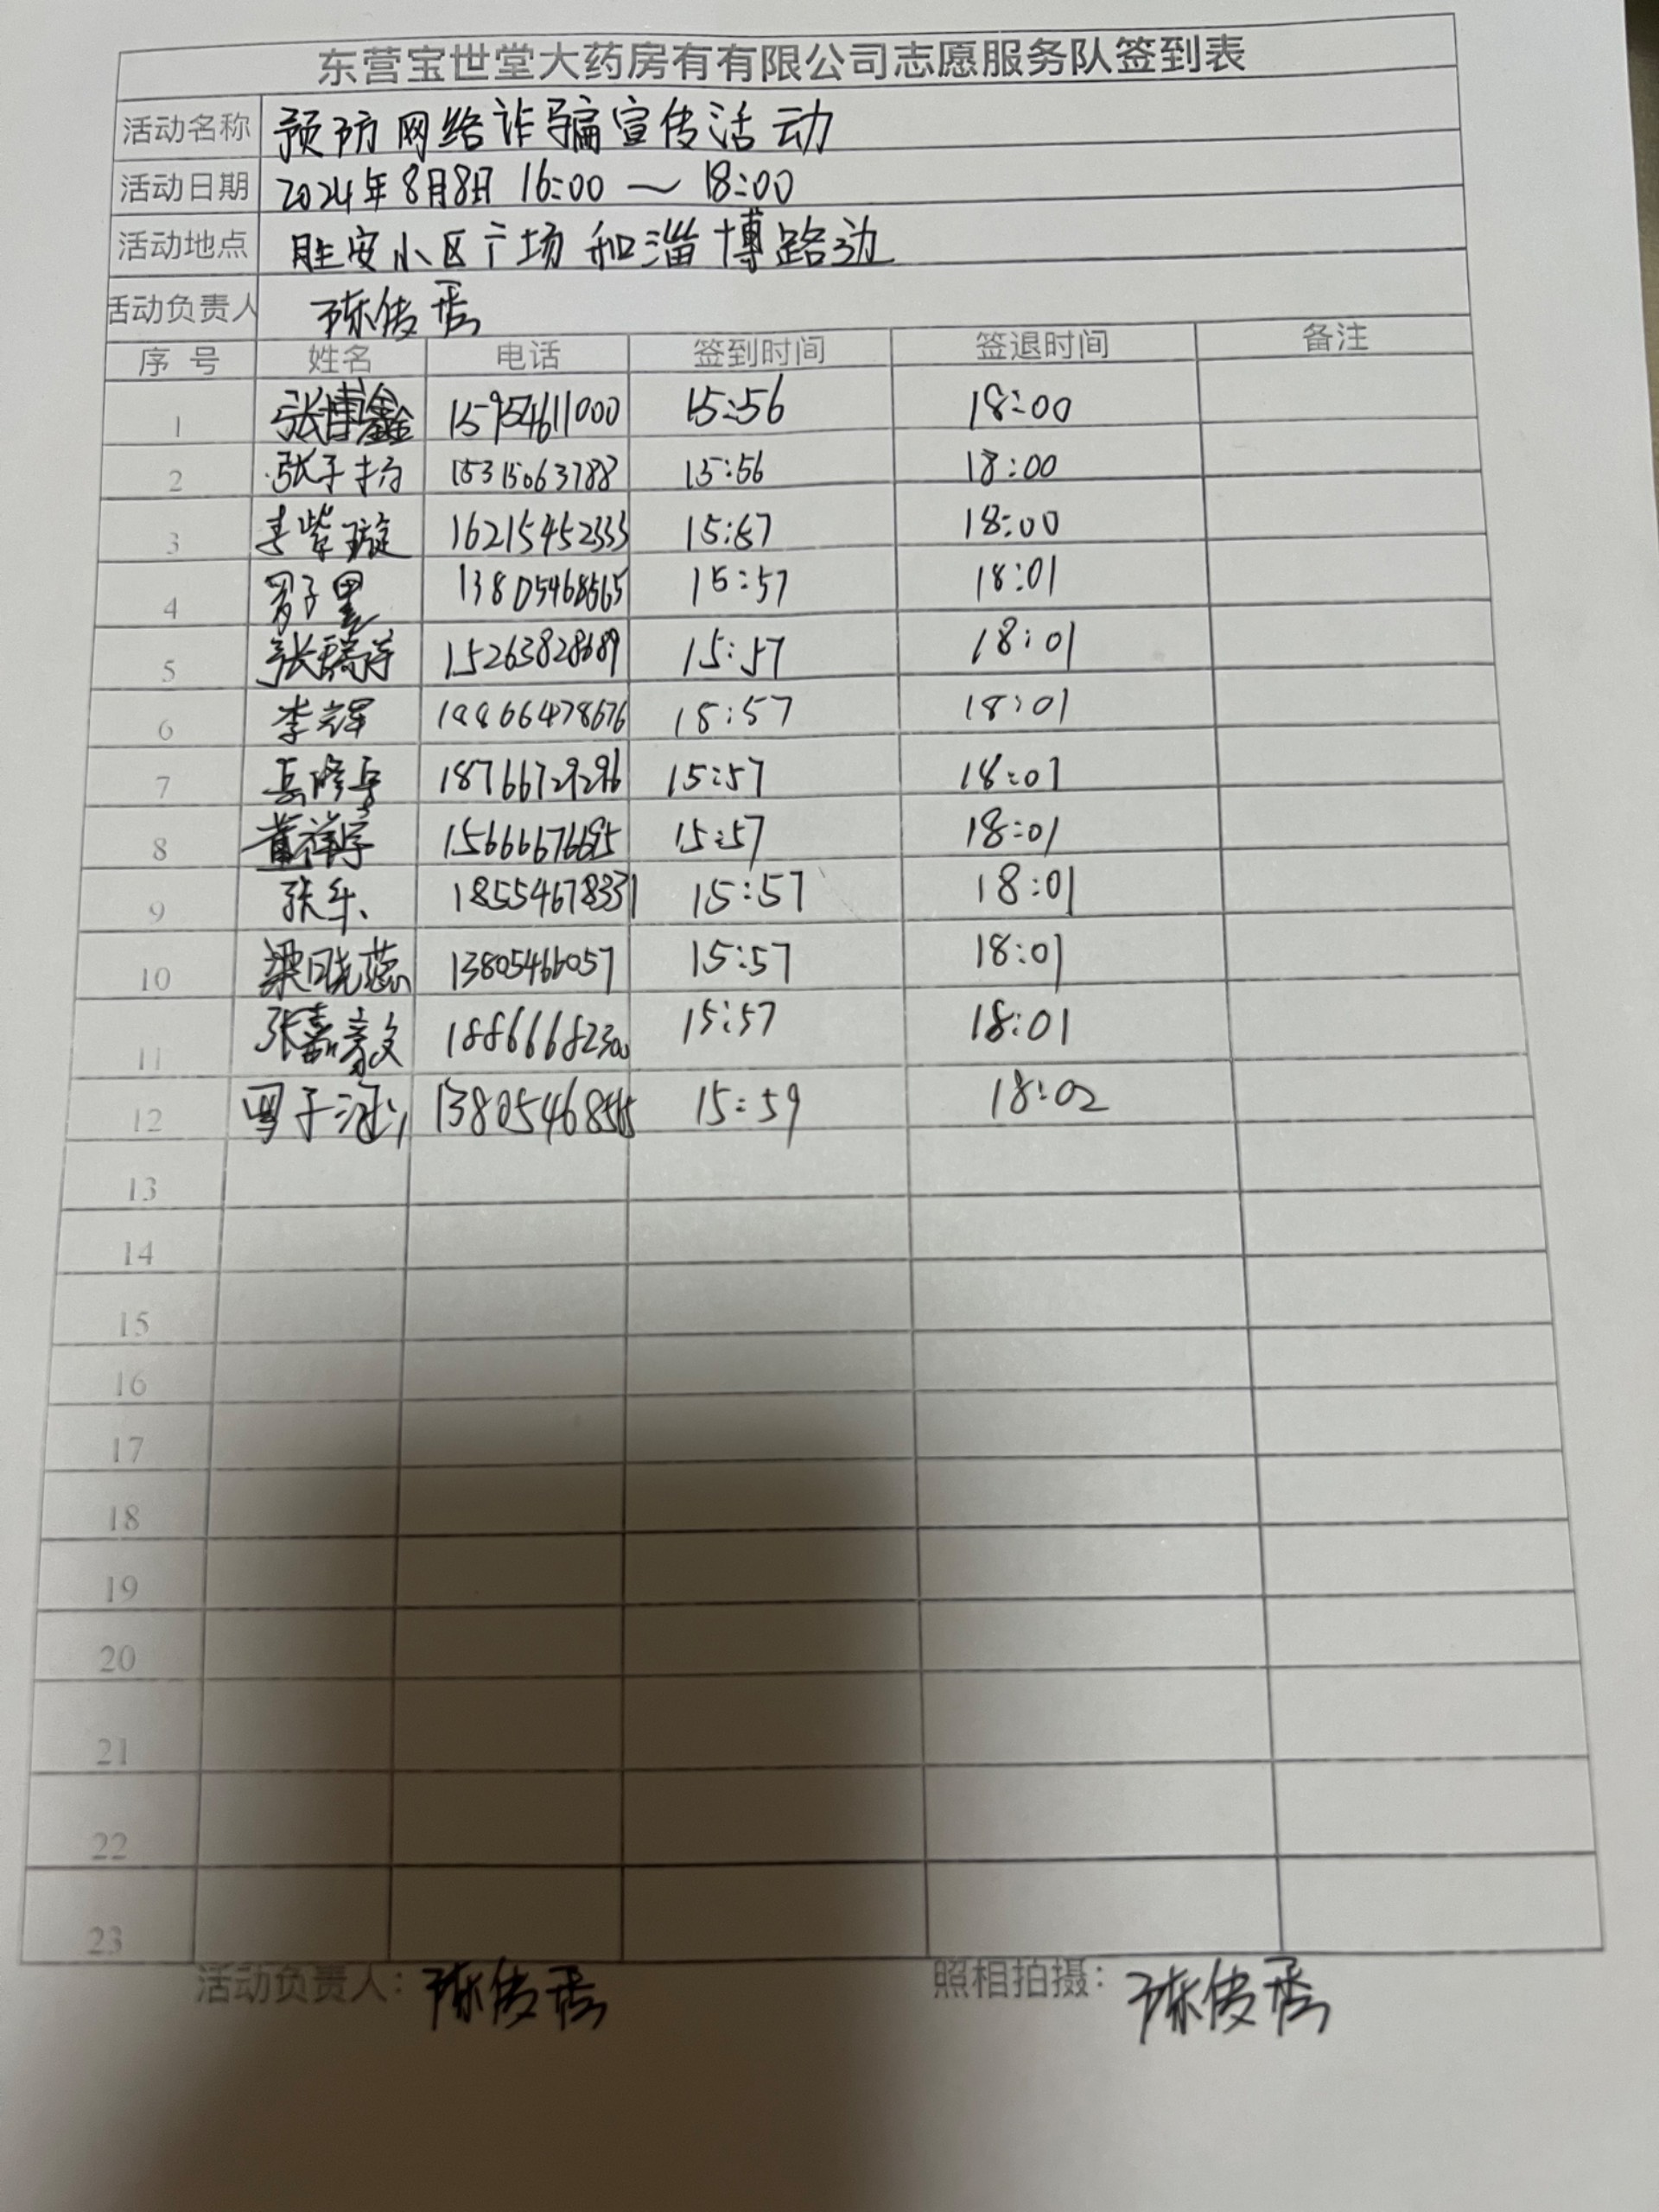 东营宝世堂大药房有有限公司志愿服务队签到表
活动名称 预防网络诈骗宣传活动
活动日期 2024年8月8日 16:00～18:00
活动地点 胜安小区广场和淄博路边
活动负责人 陈传秀
序号 姓名 电话 签到时间 签退时间 备注
1 张博鑫 15954611000 15:56 18:00
2 张子扬 15315063788 15:56 18:00
3 李紫璇 16215452333 15:57 18:00
4 罗子墨 13805468565 15:57 18:01
5 张 15263828689 15:57 18:01
6 李辉 18866478676 15:57 18:01
7 岳 18766729296 15:57 18:01
8 董祥宇 15666676695 15:57 18:01
9 张乐 18554678331 15:57 18:01
10 梁晓蕊 13805466057 15:57 18:01
11 张嘉文 15:57 18:01
12 子涵 13805468565 15:59 18:02
13
14
15
16
17
18
19
20
21
22
23
活动负责人：陈传秀 照相拍摄：陈传秀